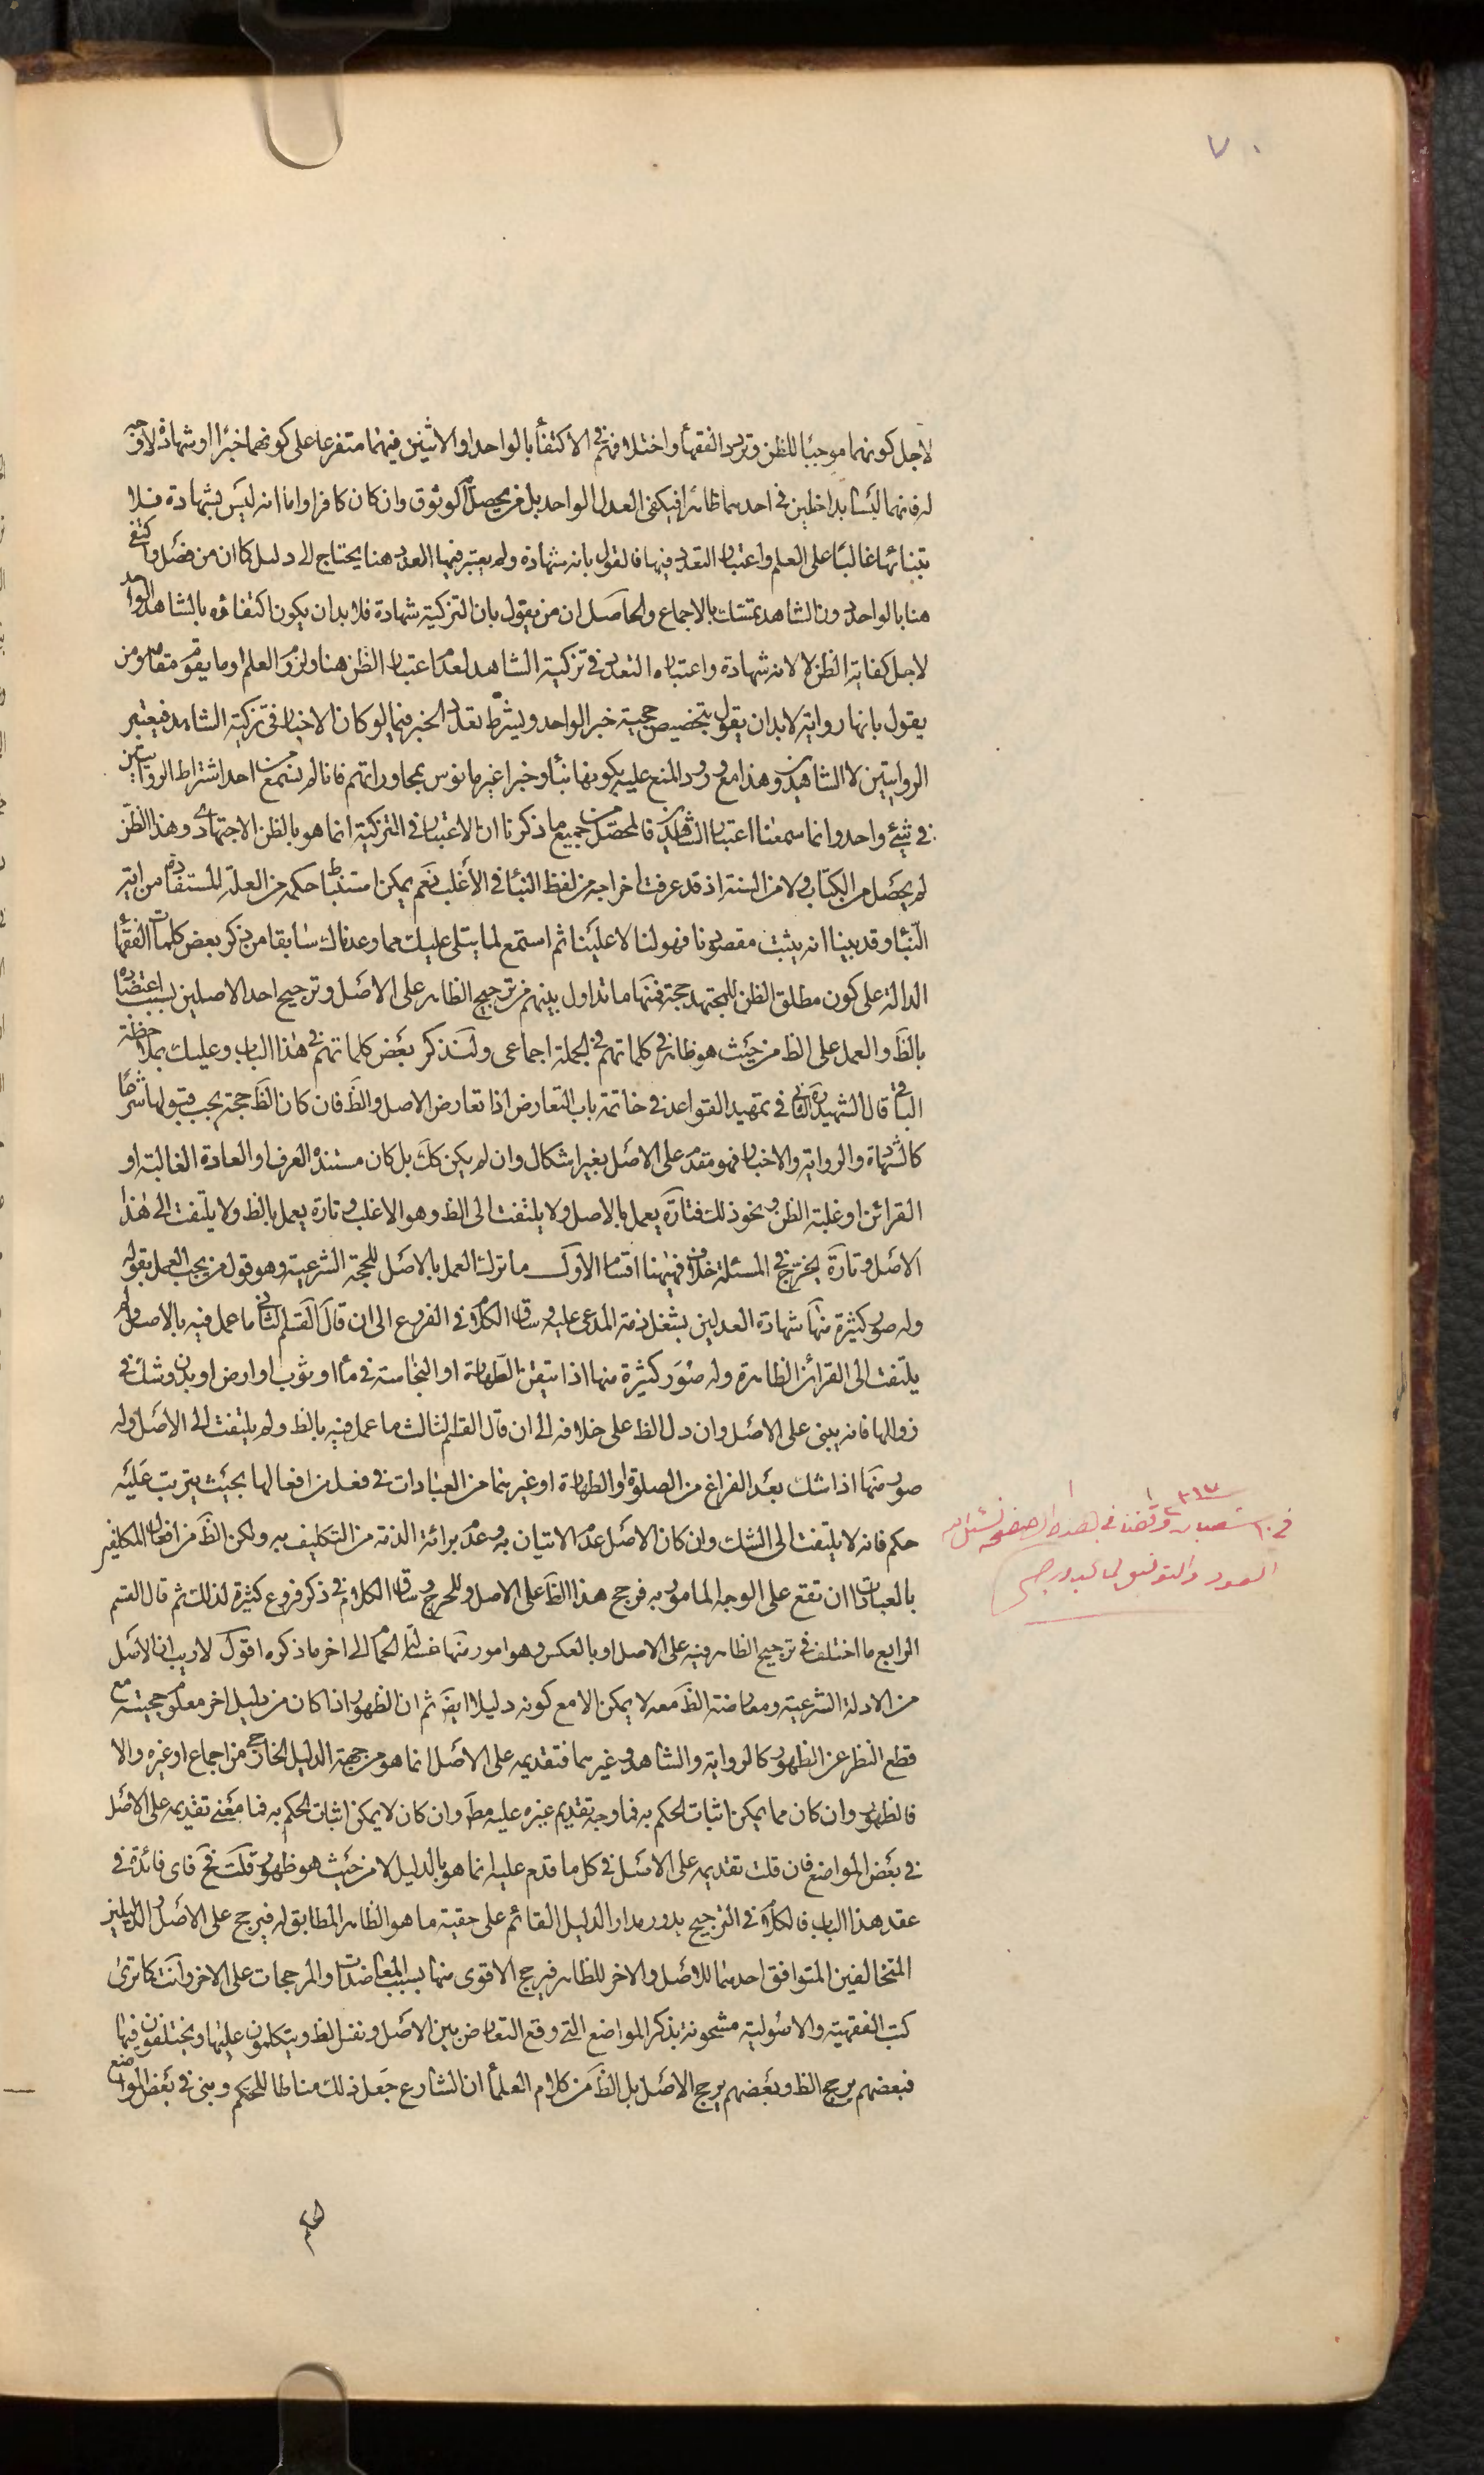 ٧٠
لاجل كونهما موجبا للظن وترى الفقهأ واختلافهم فى الاكتفأ بالواحد او الاثنين فيهما متفرعا على كونهما خبرا او شهادة لا وجه
له فانهما ليسا بداخلين فى احدهما ظاهرا فيكفى العدل الواحد بل من يحصل به الوثوق وان كان كافرا واما انه ليس بشهادة فلا
بتنائها غالبا على العلم واعتبار التعدد فيها فالقول بانه شهادة ولم يعتبر فيها العدد هنا يحتاج الى دليل كما ان من فصل واكتفى
هنا بالواحد دون الشاهد يتمسك بالاجماع والحاصل ان من يقول بان التزكية شهادة فلا بد ان يكون اكتفاؤه بالشاهد الواحد
لاجل كفاية الظن لا لانه شهادة واعتباره التعدد فى تزكية الشاهد لعدم اعتبار الظن هنا ولزوم العلم او ما يقوم مقامه ومن
يقول بانها رواية لا بد ان يقول بتخصيص حجية خبر الواحد ويشترط تعدد الخبر فيما لو كان الاخبار فى تزكية الشاهد فيعتبر
الروايتين لا الشاهدين وهذا مع ورود المنع عليه بكونها نبأ وخبرا غير مانوس بمحاوراتهم فانا لم نسمع من احد اشتراط الروايتين
فى شئ واحد وانما سمعنا اعتبار الشاهدين فالمحصل من جميع ما ذكرنا ان الاعتبار فى التزكية انما هو بالظن الاجتهادى وهذا الظن
لم يحصل من الكتاب ولا من السنة اذ قد عرفت اخراجه من لفظ النبأ فى الأغلب نعم يمكن استنباط حكمه من العلة المستفادة من اية
النبأ وقد بينا انه يثبت مقصودنا فهو لنا لا علينا ثم استمع لما يتلى عليك مما وعدناك سابقا من ذكر بعض كلمات الفقهأ
الدالة على كون مطلق الظن للمجتهد حجة فمنها ما تداول بينهم من ترجيح الظاهر على الاصل وترجيح احد الاصلين بسبب اعتضاده
بالظ والعمل على الظ من حيث هو ظاهر فى كلماتهم فى الجملة اجماعى ولنذكر بعض كلماتهم فى هذا الباب وعليك بملاحظة
الباقى قال الشهيد الثانى ره فى تمهيد القواعد فى خاتمة باب التعارض اذا تعارض الاصل والظ فان كان الظ حجة يجب قبولها شرعا
كالشهادة والرواية والاخبار فهو مقدم على الاصل بغير اشكال وان لم يكن كك بل كان مستنده العرف او العادة الغالبة او
القرائن او غلبة الظن ونحو ذلك فتارة يعمل بالاصل ولا يلتفت الى الظ وهو الاغلب وتارة يعمل بالظ ولا يلتفت الى هذا
الاصل وتارة يخرج فى المسئلة خلاف فههنا اقسام الاول ما ترك العمل بالاصل للحجة الشرعية وهو قول من يجب العمل بقوله
وله صور كثيرة منها شهادة العدلين بشغل ذمة المدعى عليه وساق الكلام فى الفروع الى ان قال القسم الثانى ما عمل فيه بالاصل ولم
يلتفت الى القرائن الظاهرة وله صور كثيرة منها اذا تيقن الطهارة او النجاسة فى مأ او ثوب او ارض او بدن وشك فى
زوالها فانه يبنى على الاصل وان دل الظ على خلافه الى ان قال القسم الثالث ما عمل فيه بالظ ولم يلتفت الى الاصل وله
صور منها اذا شك بعد الفراغ من الصلوة او الطهارة او غيرهما من العبادات فى فعل من افعالها بحيث يترتب عليه
حكم فانه لا يلتفت الى الشك وان كان الاصل عدم الاتيان به وعدم برائة الذمة من التكليف به ولكن الظ من افعال المكلفين
بالعبادات ان تقع على الوجه المامور به فرجح هذا الظ على الاصل وللحرج وساق الكلام فى ذكر فروع كثيرة لذلك ثم قال القسم
الرابع ما اختلف فى ترجيح الظاهر فيه على الاصل او بالعكس وهو امور منها غسالة الحمام الى اخر ما ذكره اقول لا ريب ان الاصل
من الادلة الشرعية ومعارضة الظ معه لا يمكن الا مع كونه دليلا ايض ثم ان الظهور اذا كان من دليل اخر معلوم حجيته مع
قطع النظر عن الظهور كالرواية والشاهد وغيرهما فتقديمه على الاصل انما هو من جهة الدليل الخارجى من اجماع او غيره والا
فالظهور وان كان مما يمكن اثبات الحكم به فما وجه تقديم غيره عليه مط وان كان لا يمكن اثبات الحكم به فما معنى تقديمه على الاصل
فى بعض المواضع فان قلت تقديمه على الاصل فى كل ما قدم عليه انما هو بالدليل لا من حيث هو ظهور قلت فح فاى فائدة فى
عقد هذا الباب فالكلام فى الترجيح يدور مدار الدليل القائم على حقية ما هو الظاهر المطابق له فيرجح على الاصل او الدليلين
المتخالفين المتوافق احدهما للاصل والاخر للظاهر فيرجح الاقوى منهما بسبب المعاضدات والمرجحات على الاخر وانت كما ترى
كتب الفقهية والاصولية مشحونة بذكر المواضع التى وقع التعارض بين الاصل ونفس الظ ويتكلمون عليها ويختلفون فيها
فبعضهم يرجح الظ وبعضهم يرجح الاصل بل الظ من كلام العلمأ ان الشارع جعل ذلك مناطا للحكم وبنى فى بعض المواضع
فى ١٠ شعبان وقفنا فى هذه الصفحه نسئل الله
العود والتوفيق